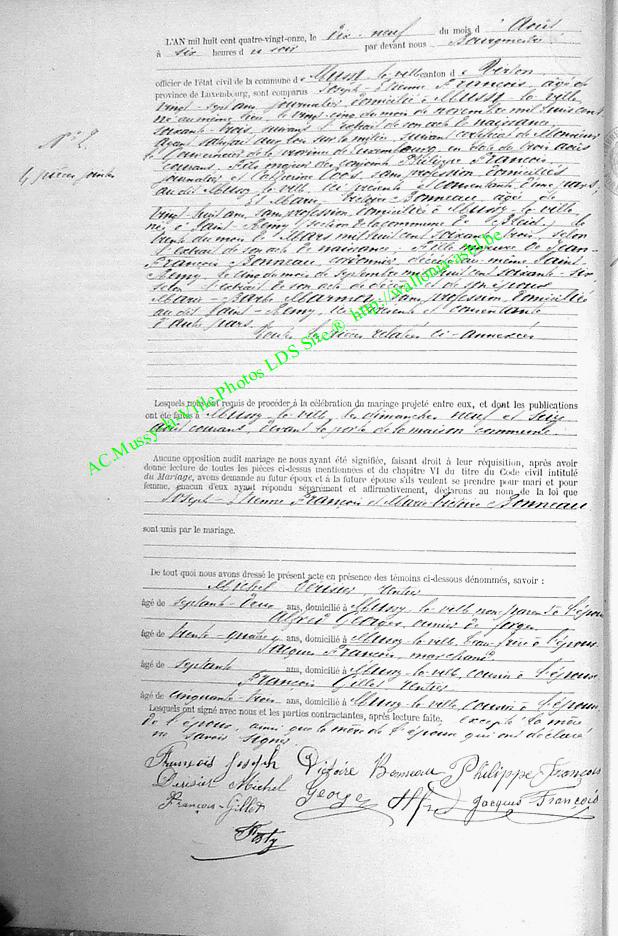 L'AN mil huit cent quatre-vingt-onze, le dix-neuf du mois d Août
à six heures du soir par devant nous Bourgmestre
officier de l'état civil de la commune de Mussy-la-ville canton de Virton
province de Luxembourg, sont comparus Joseph-Etienne François, âgé de
vingt-sept ans, journalier domicilié à Mussy-la-ville
né au même lieu, le vingt-cinq du mois de novembre mil huit cent
soixante-trois, suivant l'extrait de son acte de naissance,
ayant satisfait aux lois sur la milice, suivant certificat de Monsieur
le Gouverneur de la province de Luxembourg, en date du trois août
courant, fils majeur des conjoints Philippe François,
journalier et Catherine sans profession, domiciliés
au dit Mussy-la-ville, ici présents et consentants, d'une part;
Et Marie-Victoire Bonneau, âgée de
vingt-huit ans, sans profession, domiciliée à Mussy-la-ville
née à Saint-Remy, section de la commune de le
trente du mois de Mars mil huit cent soixante-trois, selon
l'extrait de son acte de naissance, fille majeure de Jean-
François Bonneau, cordonnier, décédé au même Saint-
Remy, le cinq du mois de septembre mil huit cent soixante-six
selon l'extrait de son acte de décès, et de son épouse
Marie-Barbe Marmoy, sans profession, domiciliée
au dit Saint-Remy, ici présente et consentante
d'autre part.
Toutes les pièces relatées ci-annexées
N° 2.
4 pièces jointes
Lesquels nous ont requis de procéder à la célébration du mariage projeté entre eux, et dont les publications
ont été faites à Mussy-la-ville, les dimanches neuf et seize
août courant, devant la porte de la maison commune.
Aucune opposition audit mariage ne nous ayant été signifiée, faisant droit à leur réquisition, après avoir
donné lecture de toutes les pièces ci-dessus mentionnées et du chapitre VI du titre du Code civil intitulé
du Mariage, avons demandé au futur époux et à la future épouse s'ils veulent se prendre pour mari et pour
femme, chacun d'eux ayant répondu séparément et affirmativement, déclarons au nom de la loi que
Joseph-Etienne François et Marie-Victoire Bonneau
sont unis par le mariage.
De tout quoi nous avons dressé le présent acte en présence des témoins ci-dessous dénommés, savoir :
Michel rentier
âgé de septante-deux ans, domicilié à Mussy-la-ville, non parent de l'époux
Alfred Georges, ouvrier de forges
âgé de trente-quatre ans, domicilié à Mussy-la-ville, beau-frère à l'époux
Jacques François, marchand
âgé de septante ans, domicilié à Mussy-la-ville, cousin à l'époux
François Gillet rentier
âgé de cinquante-trois ans, domicilié à Mussy-la-ville, cousin à l'époux
Lesquels ont signé avec nous et les parties contractantes, après lecture faite, excepté la mère
de l'époux, ainsi que la mère de l'épouse qui ont déclaré
ne savoir signer
François Joseph Victoire Bonneau Philippe François
Michel George Alfred Jacques François
François Gillet
AC.Mussy-la-Ville Photos LDS Site ® http://wallonia.asbl.be